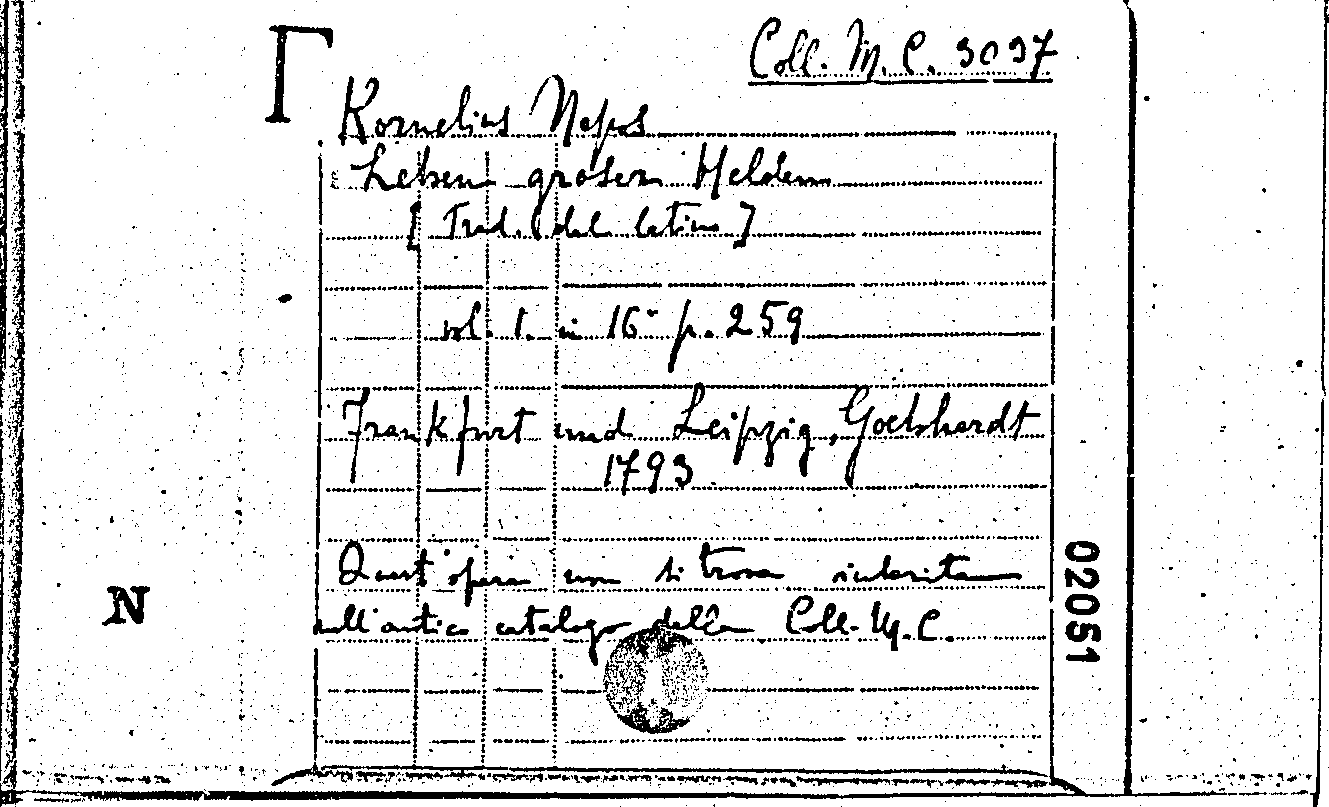 Coll. M. C. 3097
Kornelius Nepos
Leben groser Helden
[Trad. dal latino]
vol. 1. in 16° p. 259
Frankfurt und Leipzig, Goebhardt
1793
Quest'opera non si trova
nell'antico catalogo della Coll. M. C.
N
02051